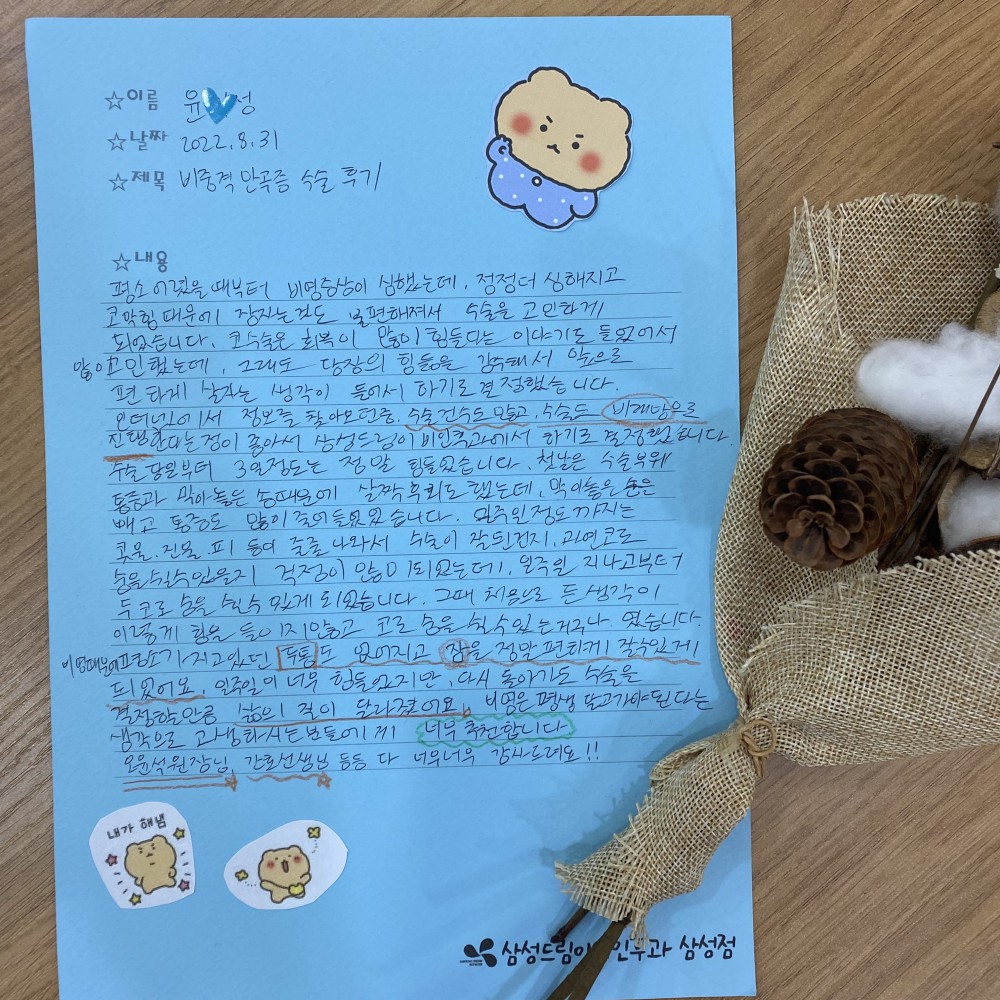 ☆이름 윤 성
☆날짜 2022.8.31
☆제목 비중격 만곡증 수술 후기
☆내용
평소 어렸을때부터 비염증상이 심했는데, 점점더 심해지고
코막힘 때문에 잠자는것도 불편해져서 수술을 고민하게
되었습니다. 코수술은 회복이 많이 힘들다는 이야기도 들었어서
많이 고민했는데, 그래도 당장의 힘듦을 감수해서 앞으로
편하게 살자는 생각이 들어서 하기로 결정했습니다.
인터넷에서 정보를 찾아오던중, 수술건수도 많고, 수술도 비개방으로
진행한다는 점이 좋아서 삼성드림이비인후과에서 하기로 결정했습니다.
수술 당일부터 3일정도는 정말 힘들었습니다. 첫날은 수술부위
통증과 막아놓은 솜때문에 살짝 후회도 했는데, 막아놓은 솜은
빼고 통증도 많이 줄어들었었습니다. 일주일정도까지는
콧물, 진물 피 등이 줄줄 나와서 수술이 잘된건지, 과연 코로
숨을 쉴수 있을지 걱정이 많이 되었는데, 일주일 지나고부터
두코로 숨을 쉴수 있게 되었습니다. 그때 처음으로 든 생각이
이렇게 힘을 들이지않고 코로 숨을 쉴수있는거구나 였습니다.
비염때문에 평소가지고있던 두통도 없어지고 잠을 정말 편하게 잘수있게
되었어요. 일주일이 너무 힘들었지만, 다시 돌아가도 수술을
결정할만큼 삶의 질이 달라졌어요. 비염은 평생 달고가야된다는
생각으로 고생하시는분들에게 너무 추천합니다
오윤석원장님, 간호선생님 등등 다 너무너무 감사드려요!!
내가 해냄
삼성드림이 인후과 삼성점